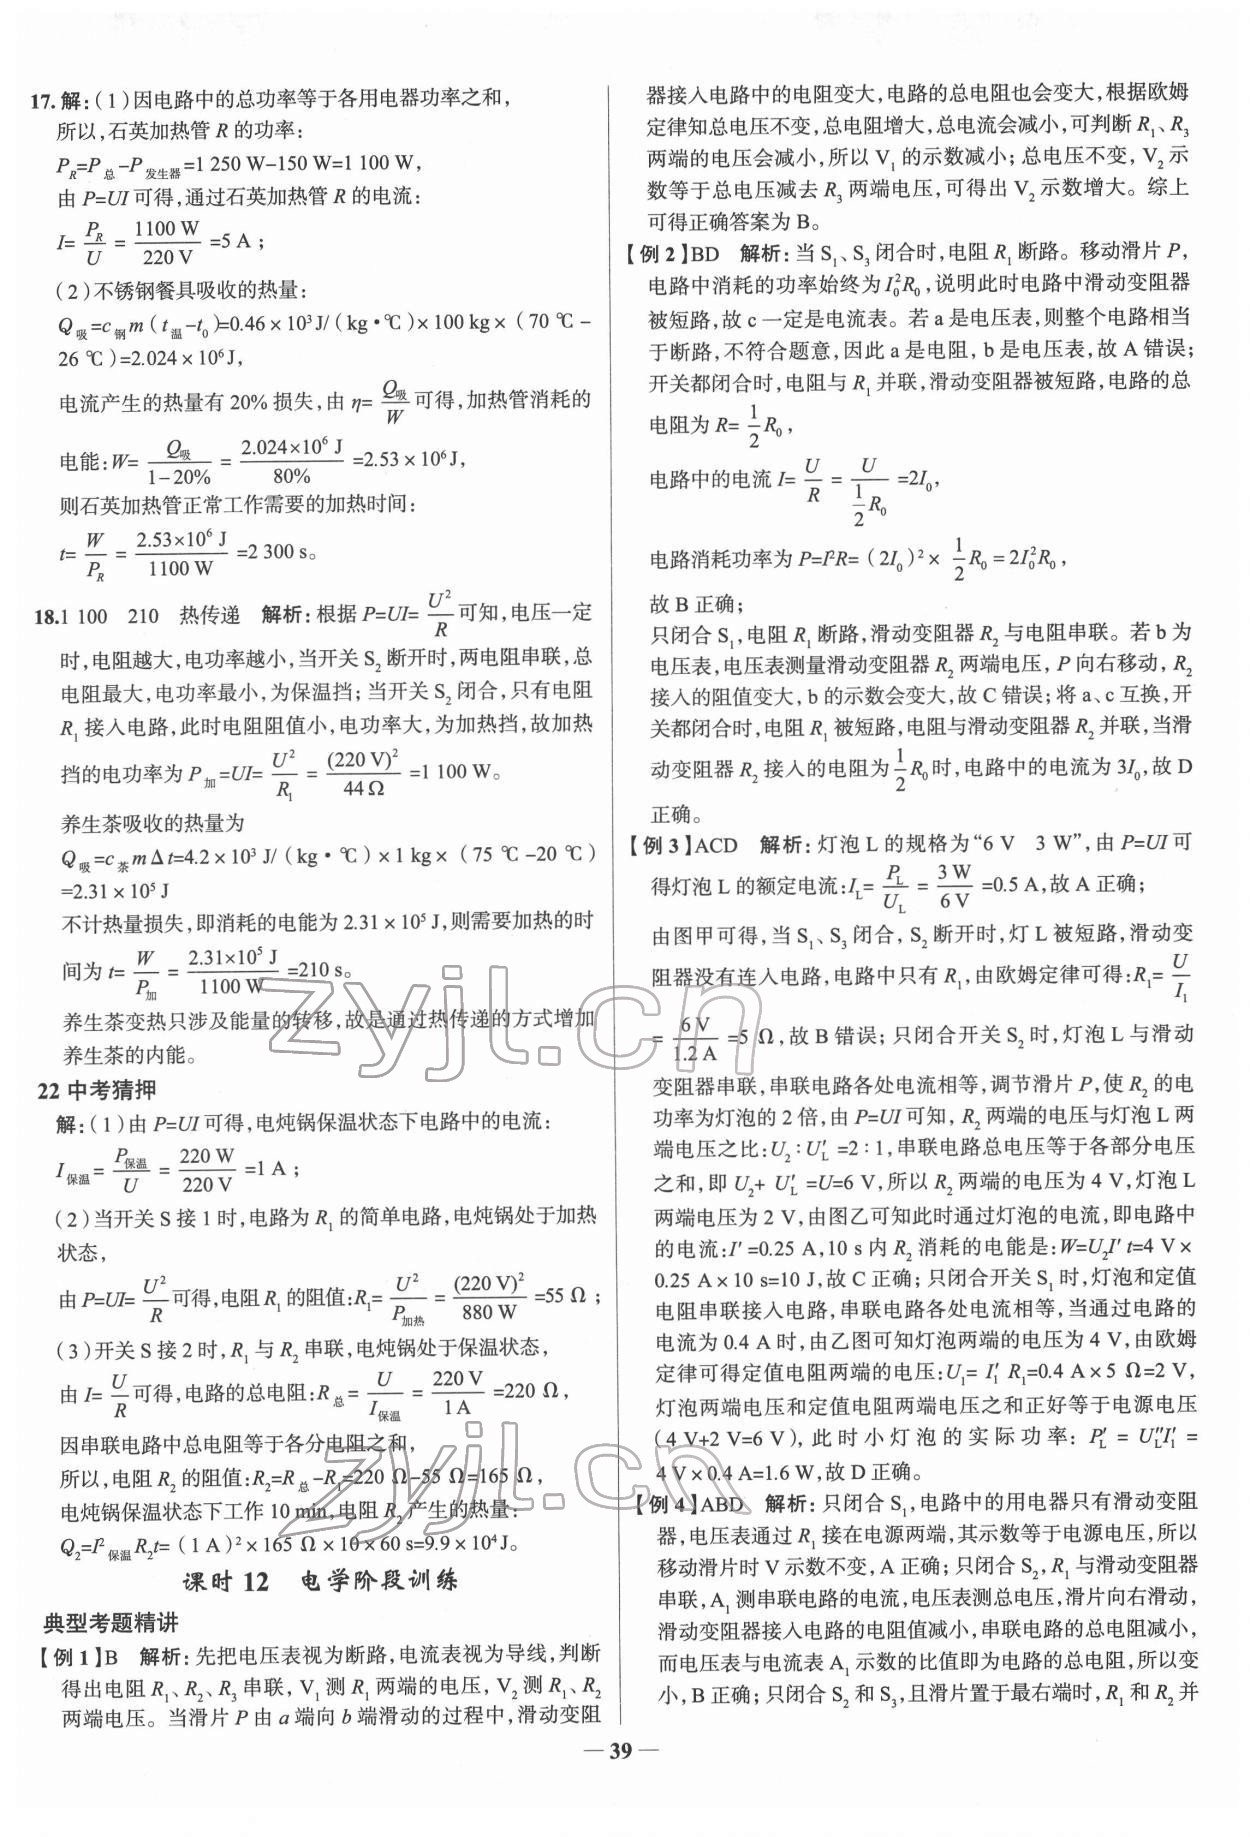 17.解:(1)因电路中的总功率等于各用电器功率之和,
所以,石英加热管 R 的功率:
P_R=P_总-P_发生器=1 250 W-150 W=1 100 W,
由 P=UI 可得,通过石英加热管 R 的电流:
I= P_R/U = 1100 W/220 V =5 A ;
(2)不锈钢餐具吸收的热量:
Q_吸=c_钢m(t_温-t_0)=0.46×10³J/(kg·℃)×100 kg×(70 ℃-
26 ℃)=2.024×10⁶J,
电流产生的热量有 20% 损失,由 η= Q_吸/W 可得,加热管消耗的
电能:W= Q_吸/1-20% = 2.024×10⁶ J/80% =2.53×10⁶J,
则石英加热管正常工作需要的加热时间:
t= W/P_R = 2.53×10⁶ J/1100 W =2 300 s。
18.1 100 210 热传递 解析:根据 P=UI= U²/R 可知,电压一定
时,电阻越大,电功率越小,当开关 S₂ 断开时,两电阻串联,总
电阻最大,电功率最小,为保温挡;当开关 S₂ 闭合,只有电阻
R₁ 接入电路,此时电阻阻值小,电功率大,为加热挡,故加热
挡的电功率为 P_加=UI= U²/R₁ = (220 V)²/44 Ω =1 100 W。
养生茶吸收的热量为
Q_吸=c_茶mΔt=4.2×10³ J/(kg·℃)×1 kg×(75 ℃-20 ℃)
=2.31×10⁵ J
不计热量损失,即消耗的电能为 2.31×10⁵ J,则需要加热的时
间为 t= W/P_加 = 2.31×10⁵ J/1100 W =210 s。
养生茶变热只涉及能量的转移,故是通过热传递的方式增加
养生茶的内能。
22 中考猜押
解:(1)由 P=UI 可得,电炖锅保温状态下电路中的电流:
I_保温= P_保温/U = 220 W/220 V =1 A ;
(2)当开关 S 接 1 时,电路为 R₁ 的简单电路,电炖锅处于加热
状态,
由 P=UI= U²/R 可得,电阻 R₁ 的阻值:R₁= U²/P_加热 = (220 V)²/880 W =55 Ω ;
(3)开关 S 接 2 时,R₁ 与 R₂ 串联,电炖锅处于保温状态,
由 I= U/R 可得,电路的总电阻:R_总= U/I_保温 = 220 V/1 A =220 Ω,
因串联电路中总电阻等于各分电阻之和,
所以,电阻 R₂ 的阻值:R₂=R_总-R₁=220 Ω-55 Ω=165 Ω,
电炖锅保温状态下工作 10 min,电阻 R₂ 产生的热量:
Q₂=I²_保温R₂t=(1 A)²×165 Ω×10×60 s=9.9×10⁴J。
课时 12 电学阶段训练
典型考题精讲
【例 1】B 解析:先把电压表视为断路,电流表视为导线,判断
得出电阻 R₁、R₂、R₃ 串联, V₁ 测 R₁ 两端的电压, V₂ 测 R₁、R₂
两端电压。当滑片 P 由 a 端向 b 端滑动的过程中,滑动变阻
器接入电路中的电阻变大,电路的总电阻也会变大,根据欧姆
定律知总电压不变,总电阻增大,总电流会减小,可判断 R₁、R₃
两端的电压会减小,所以 V₁ 的示数减小;总电压不变, V₂ 示
数等于总电压减去 R₃ 两端电压,可得出 V₂ 示数增大。综上
可得正确答案为 B。
【例 2】BD 解析:当 S₁、S₃ 闭合时,电阻 R₁ 断路。移动滑片 P,
电路中消耗的功率始终为 I₀²R₀,说明此时电路中滑动变阻器
被短路,故 c 一定是电流表。若 a 是电压表,则整个电路相当
于断路,不符合题意,因此 a 是电阻, b 是电压表,故 A 错误;
开关都闭合时,电阻与 R₁ 并联,滑动变阻器被短路,电路的总
电阻为 R= 1/2 R₀,
电路中的电流 I= U/R = U/(1/2 R₀) =2I₀,
电路消耗功率为 P=I²R=(2I₀)²× 1/2 R₀=2I₀²R₀,
故 B 正确;
只闭合 S₁,电阻 R₁ 断路,滑动变阻器 R₂ 与电阻串联。若 b 为
电压表,电压表测量滑动变阻器 R₂ 两端电压, P 向右移动, R₂
接入的阻值变大, b 的示数会变大,故 C 错误;将 a、c 互换,开
关都闭合时,电阻 R₁ 被短路,电阻与滑动变阻器 R₂ 并联,当滑
动变阻器 R₂ 接入的电阻为 1/2 R₀时,电路中的电流为 3I₀,故 D
正确。
【例 3】ACD 解析:灯泡 L 的规格为“6 V 3 W”,由 P=UI 可
得灯泡 L 的额定电流:I_L= P_L/U_L = 3 W/6 V =0.5 A,故 A 正确;
由图甲可得,当 S₁、S₃ 闭合, S₂ 断开时,灯 L 被短路,滑动变
阻器没有连入电路,电路中只有 R₁,由欧姆定律可得:R₁= U/I₁
= 6 V/1.2 A =5 Ω,故 B 错误;只闭合开关 S₂ 时,灯泡 L 与滑动
变阻器串联,串联电路各处电流相等,调节滑片 P,使 R₂ 的电
功率为灯泡的 2 倍,由 P=UI 可知, R₂ 两端的电压与灯泡 L 两
端电压之比:U₂∶U′_L=2∶1,串联电路总电压等于各部分电压
之和,即 U₂+ U′_L =U=6 V,所以 R₂ 两端的电压为 4 V,灯泡 L
两端电压为 2 V,由图乙可知此时通过灯泡的电流,即电路中
的电流:I′=0.25 A,10 s 内 R₂ 消耗的电能是:W=U₂I′t=4 V×
0.25 A×10 s=10 J,故 C 正确;只闭合开关 S₁ 时,灯泡和定值
电阻串联接入电路,串联电路各处电流相等,当通过电路的
电流为 0.4 A 时,由乙图可知灯泡两端的电压为 4 V,由欧姆
定律可得定值电阻两端的电压:U₁= I′₁ R₁=0.4 A×5 Ω=2 V,
灯泡两端电压和定值电阻两端电压之和正好等于电源电压
(4 V+2 V=6 V),此时小灯泡的实际功率: P′_L = U″_LI′₁ =
4 V×0.4 A=1.6 W,故 D 正确。
【例 4】ABD 解析:只闭合 S₁,电路中的用电器只有滑动变阻
器,电压表通过 R₁ 接在电源两端,其示数等于电源电压,所以
移动滑片时 V 示数不变, A 正确;只闭合 S₂,R₁ 与滑动变阻器
串联, A₁ 测串联电路的电流,电压表测总电压,滑片向右滑动,
滑动变阻器接入电路的电阻值减小,串联电路的总电阻减小,
而电压表与电流表 A₁ 示数的比值即为电路的总电阻,所以变
小,B 正确;只闭合 S₂ 和 S₃,且滑片置于最右端时, R₁ 和 R₂ 并
zyjl.cn
zyjl.cn
— 39 —